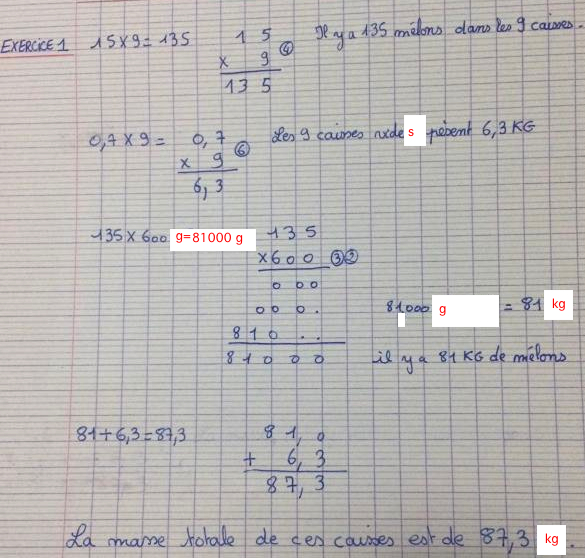 EXERCICE 1 15 x 9 = 135 1 5 Il y a 135 mélons dans les 9 caisses.
x 9 ④
13 5
0,7 x 9 = 0,7 Les 9 caisses vides pèsent 6,3 KG
x 9 ⑥
6,3
135 x 600 g=81000 g 135
x600 ③②
0 00
00 0 . 81000 g = 81 kg
8 1 0 . .
8 1 0 0 0 il y a 81 KG de mélons
81 + 6,3 = 87,3 8 1, 0
+ 6, 3
8 7, 3
La masse totale de ces caisses est de 87,3 kg.